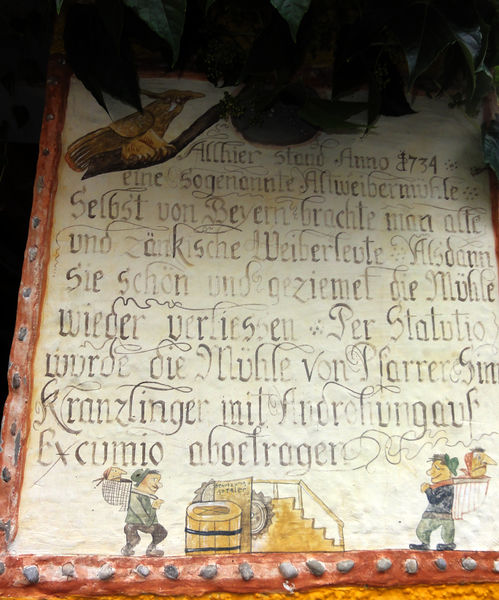 Allhier stand Anno 1734
eine Sogenannte Altweibermühle
Selbst von Beyern brachte man alte
und zänkische Weiberleute Alsdann
Sie schön und geziemet die Mühle
wieder verliessen Per Statutio
wurde die Mühle von Pfarrer Sim
Kranzlinger mit Androhung auf
Excumio abgetragen